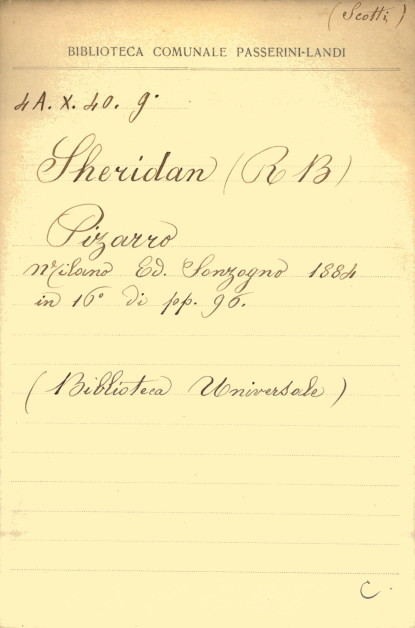 (Scotti)
BIBLIOTECA COMUNALE PASSERINI-LANDI
4A. X. 40. g.
Sheridan (R B)
Pizarro
Milano Ed. Sonzogno 1884
in 16° di pp. 96.
(Biblioteca Universale)
C.